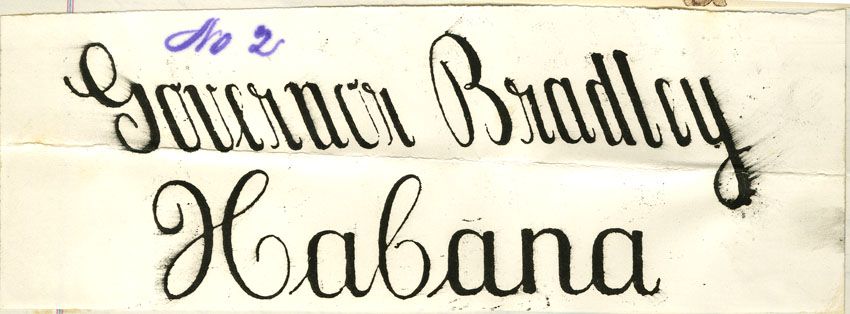 No 2
Governor Bradley
Habana